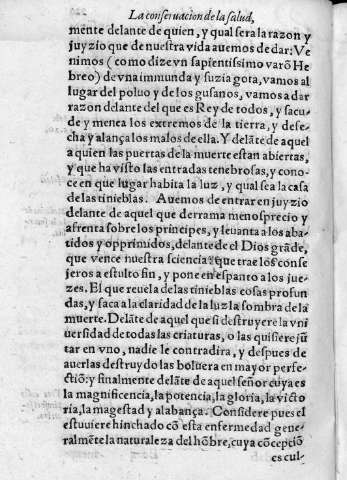 La conseruacion de la salud,
mente delante de quien, y qual sera la razon y
juyzio que de nuestra vida auemos de dar: Ve
nimos (como dize vn sapientissimo varõ He
breo) de vna immunda y suzia gota, vamos al
lugar del poluo y de los gusanos, vamos a dar
razon delante del que es Rey de todos, y sacu-
de y menea los extremos de la tierra, y dese-
cha y alança los malos de ella. Y delãte de aquel
a quien las puertas de la muerte estan abiertas,
y que ha visto las entradas tenebrosas, y cono-
ce en que lugar habita la luz, y qual sea la casa
de las tinieblas. Auemos de entrar en juyzio
delante de aquel que derrama menosprecio y
afrenta sobre los principes, y leuanta a los aba-
tidos y opprimidos, delante de el Dios grãde,
que vence nuestra sciencia, que trae los conse
jeros a estulto fin, y pone en espanto a los jue-
zes. El que reuela de las tinieblas cosas profun
das, y saca a la claridad de la luz la sombra de la
muerte. Delãte de aquel que si destruyere la vni
uersidad de todas las criaturas, o las quisiere jũ
tar en vno, nadie le contradira, y despues de
auerlas destruydo las boluera en mayor perfe-
ctiõ: y finalmente delãte de aquel señor cuya es
la magnificencia, la potencia, la gloria, la victo
ria, la magestad y alabança. Considere pues el
estuuiere hinchado cõ esta enfermedad gene-
ralmẽte la naturaleza del hõbre, cuya cõcepciõ
es cul-